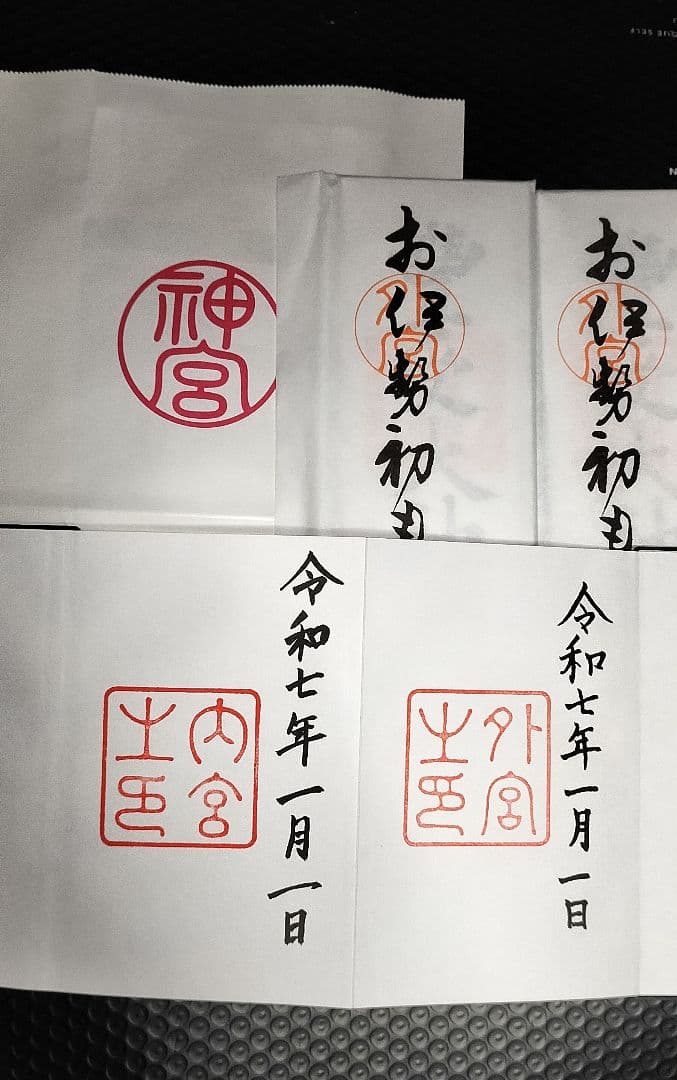 神宮
お伊勢初も
外宮
お伊勢初も
外宮
令和七年一月一日
内宮
之印
令和七年一月一日
外宮
之印